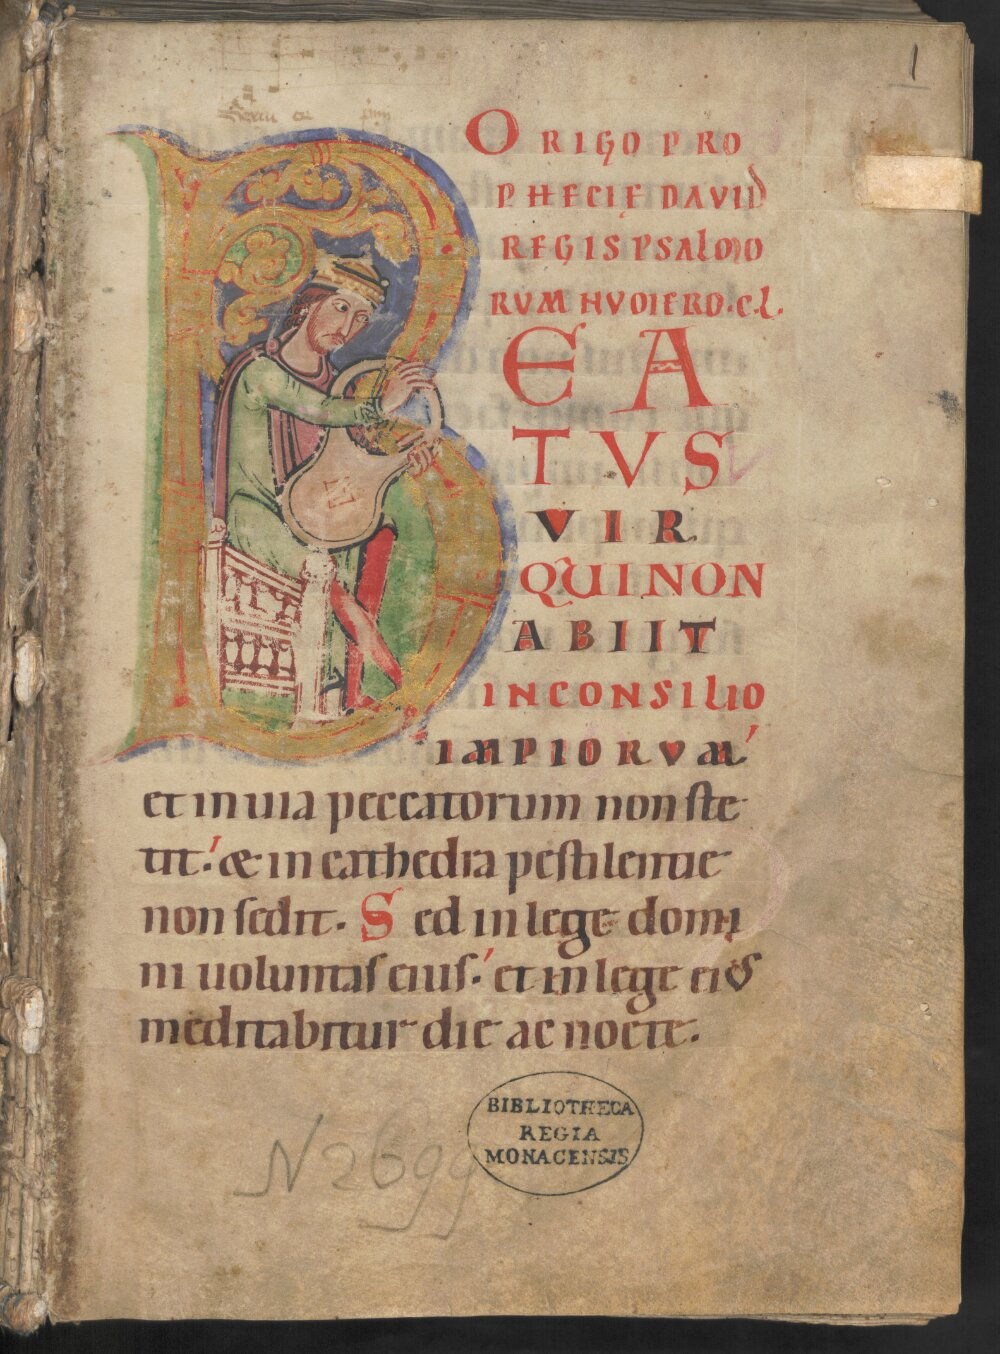 1
ORIGO PRO
PHECIE DAVID
REGIS PSALMO
RVM NVMERO·C·L·
BEA
TVS
VIR
QUI NON
ABIIT
IN CONSILIO
IMPIORVM
et in uia peccatorum non ste
tit: & in cathedra pestilentie
non sedit. Sed in lege domi
ni uoluntas eius: et in lege eius
meditabitur die ac nocte.
BIBLIOTHECA
REGIA
MONACENSIS
N 2699